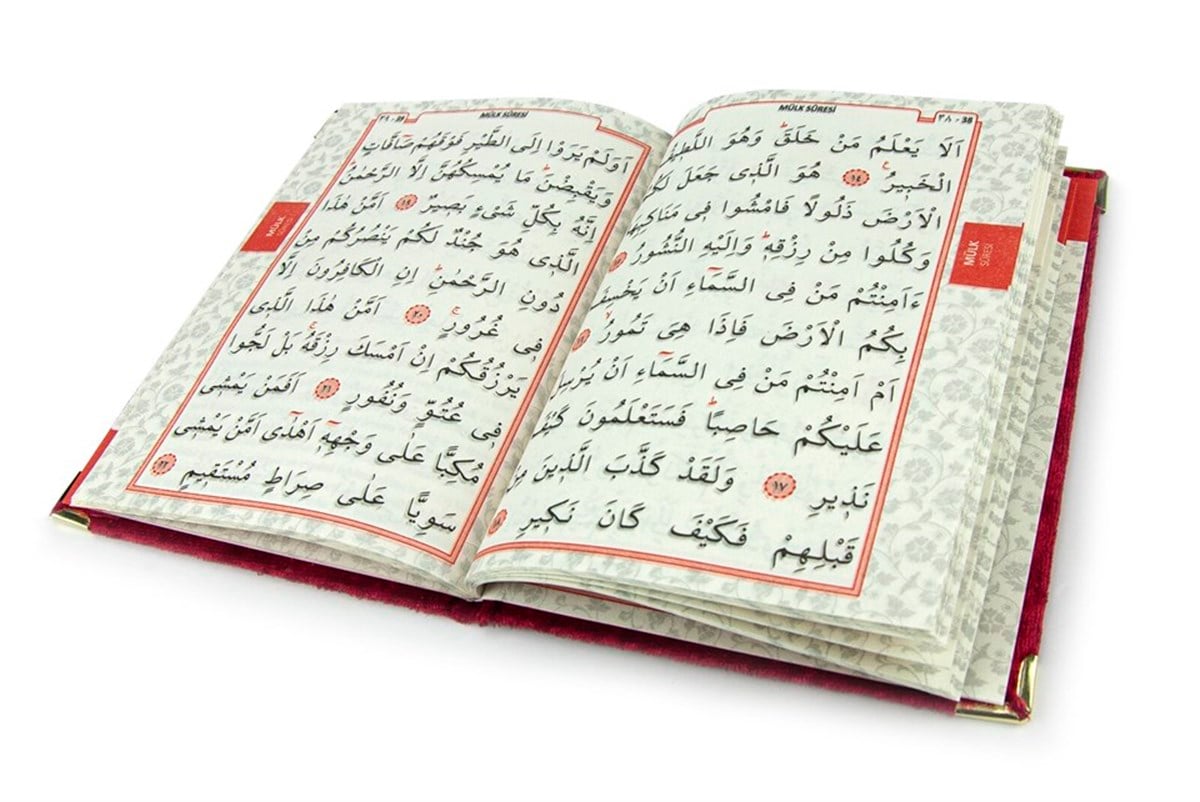 ٣٨ - 38
MÜLK SÛRESİ
اَلَا يَعْلَمُ مَنْ خَلَقَۜ وَهُوَ اللَّط۪يفُ
الْخَب۪يرُ۟ ﴿١٤﴾ هُوَ الَّذ۪ي جَعَلَ لَكُمُ
الْاَرْضَ ذَلُولًا فَامْشُوا ف۪ي مَنَاكِبِهَا
وَكُلُوا مِنْ رِزْقِه۪ۜ وَاِلَيْهِ النُّشُورُ
ءَاَمِنْتُمْ مَنْ فِي السَّمَٓاءِ اَنْ يَخْسِفَ
بِكُمُ الْاَرْضَ فَاِذَا هِيَ تَمُورُۙ
اَمْ اَمِنْتُمْ مَنْ فِي السَّمَٓاءِ اَنْ يُرْسِلَ
عَلَيْكُمْ حَاصِبًاۜ فَسَتَعْلَمُونَ كَيْفَ
نَذ۪يرِ ﴿١٧﴾ وَلَقَدْ كَذَّبَ الَّذ۪ينَ مِنْ
قَبْلِهِمْ فَكَيْفَ كَانَ نَك۪يرِ
MÜLK
SÛRESİ
٣٩ - 39
MÜLK SÛRESİ
اَوَلَمْ يَرَوْا اِلَى الطَّيْرِ فَوْقَهُمْ صَٓافَّاتٍ
وَيَقْبِضْنَۜ مَا يُمْسِكُهُنَّ اِلَّا الرَّحْمٰنُۜ
اِنَّهُ بِكُلِّ شَيْءٍ بَص۪يرٌ ﴿١٩﴾ اَمَّنْ هٰذَا
الَّذ۪ي هُوَ جُنْدٌ لَكُمْ يَنْصُرُكُمْ مِنْ
دُونِ الرَّحْمٰنِۜ اِنِ الْكَافِرُونَ اِلَّا
ف۪ي غُرُورٍۚ ﴿٢٠﴾ اَمَّنْ هٰذَا الَّذ۪ي
يَرْزُقُكُمْ اِنْ اَمْسَكَ رِزْقَهُۚ بَلْ لَجُّوا
ف۪ي عُتُوٍّ وَنُفُورٍ ﴿٢١﴾ اَفَمَنْ يَمْش۪ي
مُكِبًّا عَلٰى وَجْهِه۪ٓ اَهْدٰٓى اَمَّنْ يَمْش۪ي
سَوِيًّا عَلٰى صِرَاطٍ مُسْتَق۪يمٍ ﴿٢٢﴾
MÜLK
SÛRESİ